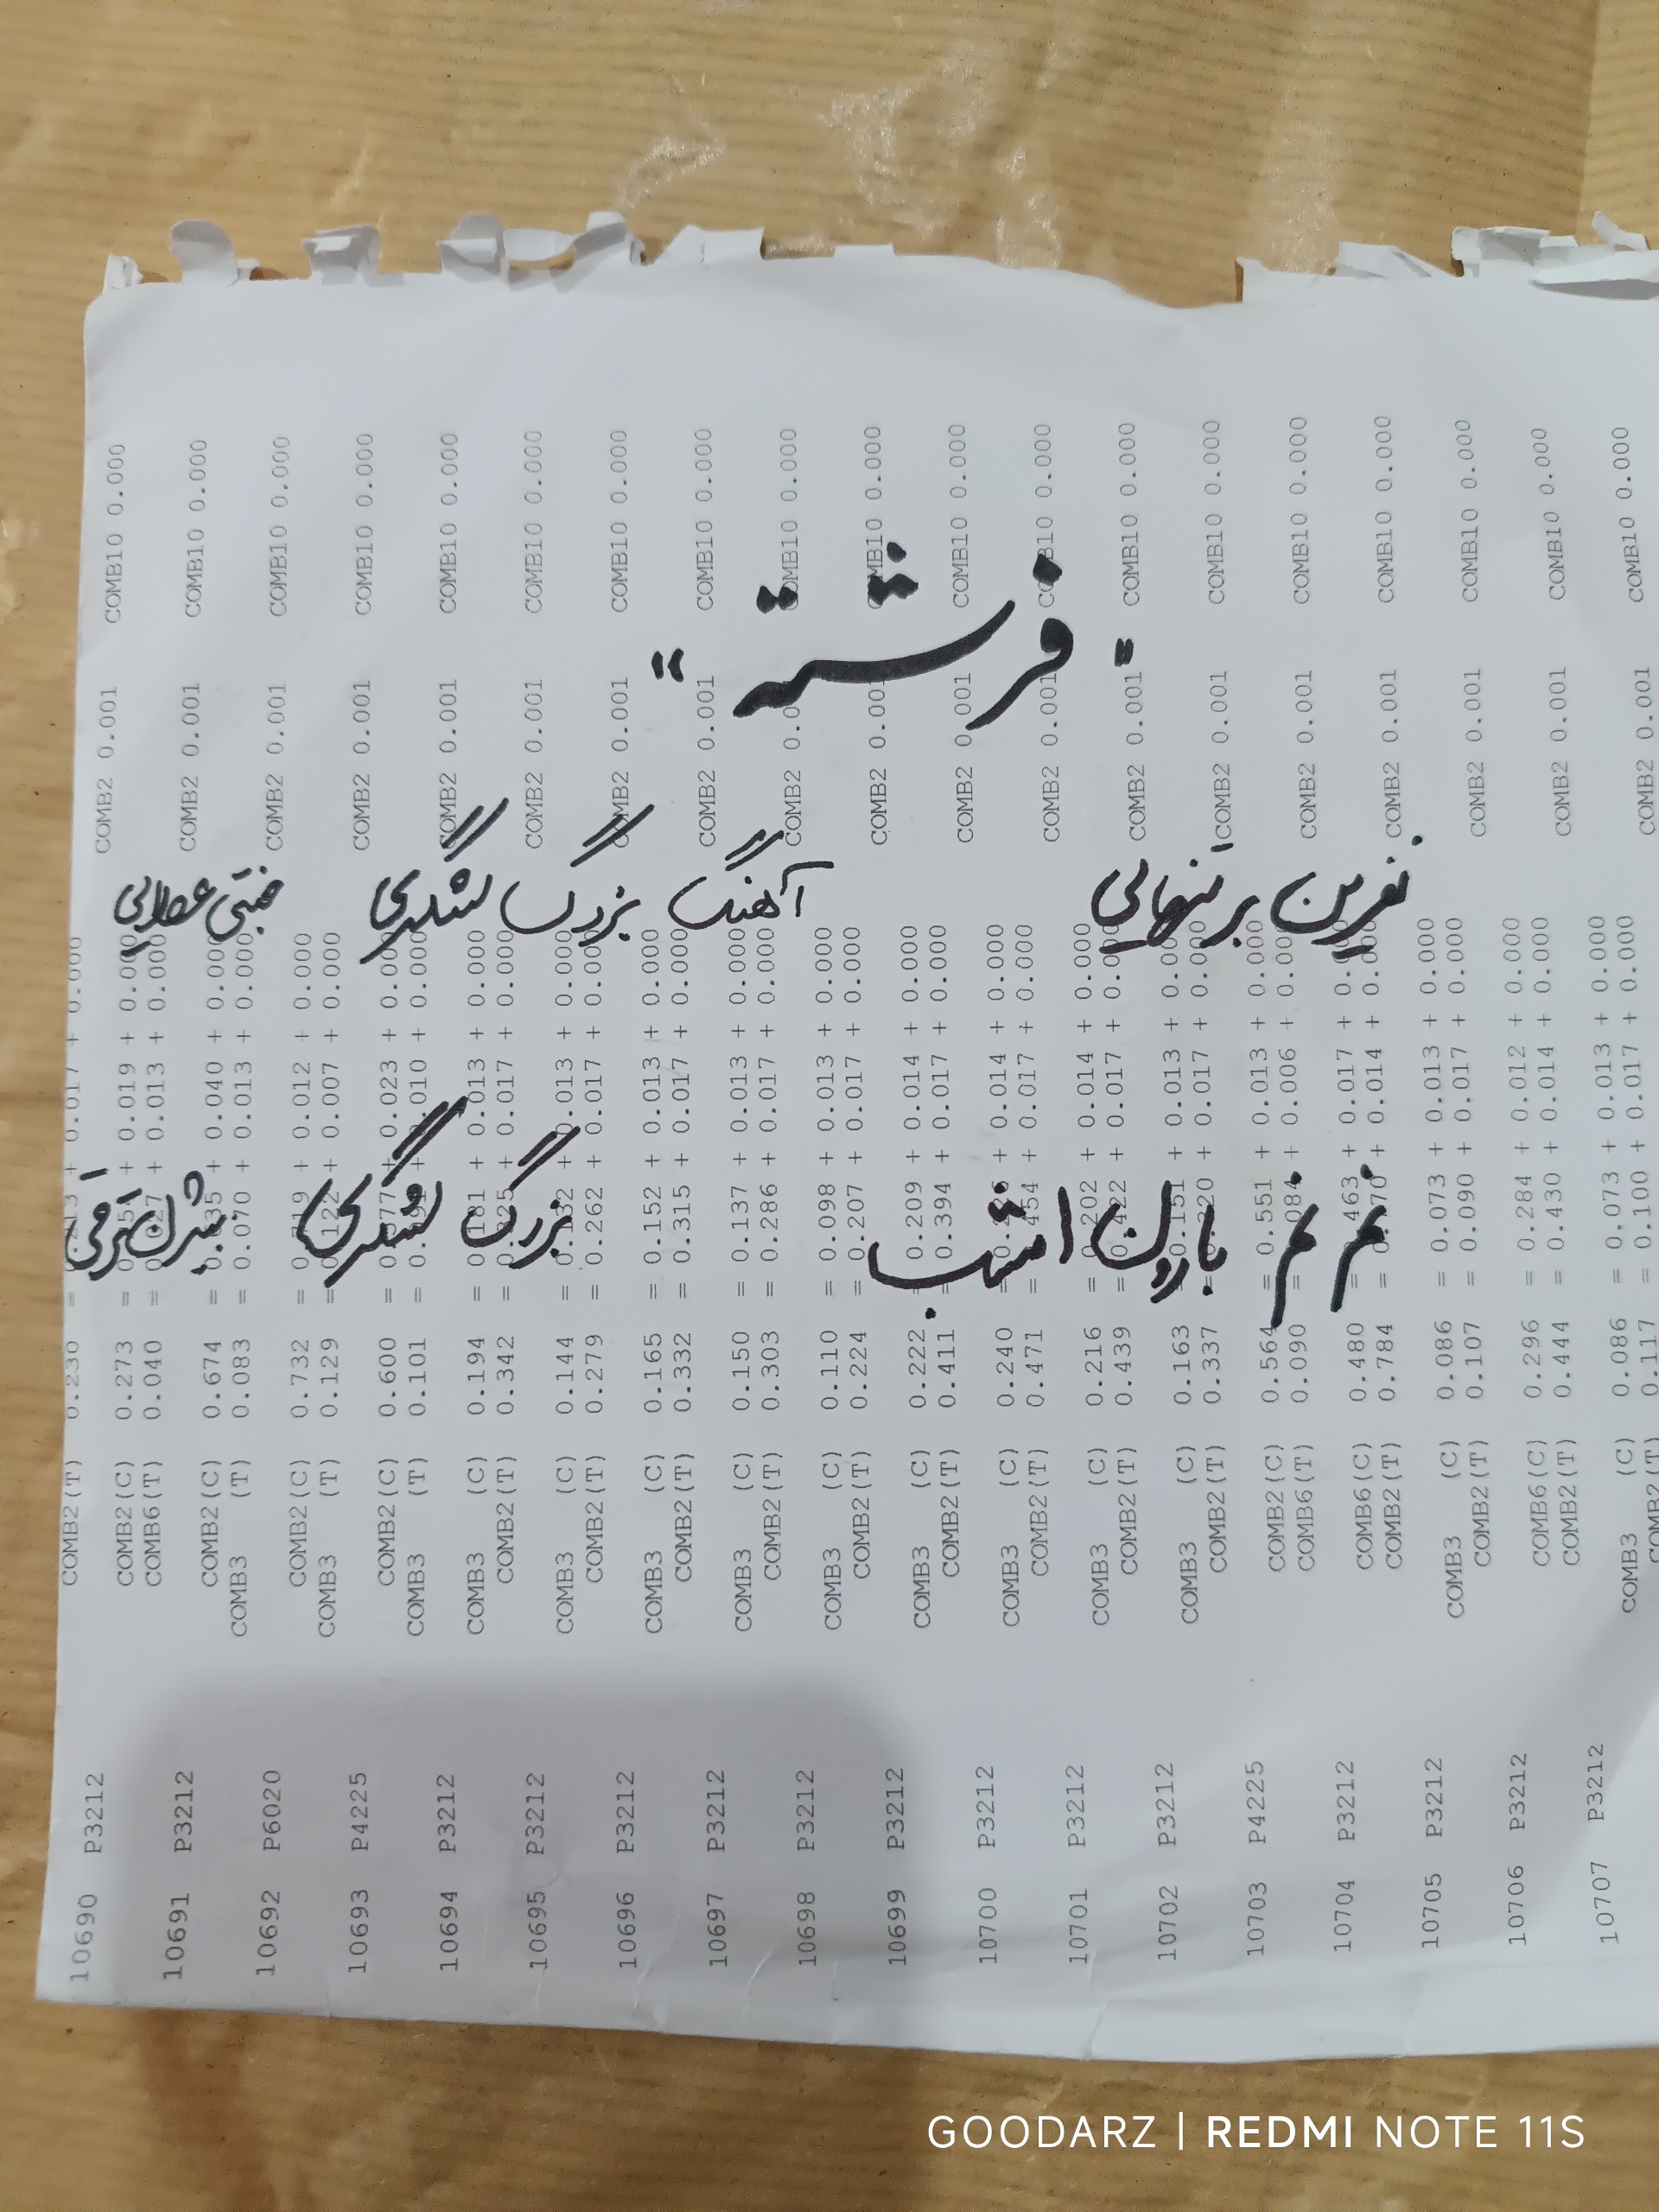 "فرشته"
نفرین بر تنهایی آهنگ بزرگ لشگری
نم نم بارون امشب بزرگ لشگری ترقی
COMB2(T) 0.230 = + 0.017 + 0.000
10690 P3212 COMB2(C) 0.273 = + 0.019 + COMB2 0.001 COMB10 0.000
COMB6(T) 0.040 = + 0.013 + 0.000
10691 P3212 COMB2(C) 0.674 = + 0.040 + 0.000 COMB2 0.001 COMB10 0.000
COMB3 (T) 0.083 = 0.070 + 0.013 + 0.000
10692 P6020 COMB2(C) 0.732 = + 0.012 + 0.000 COMB2 0.001 COMB10 0.000
COMB3 (T) 0.129 = 0.122 + 0.007 + 0.000
10693 P4225 COMB2(C) 0.600 = + 0.023 + 0.000 COMB2 0.001 COMB10 0.000
COMB3 (T) 0.101 = + 0.010 + 0.000
10694 P3212 COMB3 (C) 0.194 = 0.181 + 0.013 + 0.000 COMB2 0.001 COMB10 0.000
COMB2(T) 0.342 = 0.325 + 0.017 + 0.000
10695 P3212 COMB3 (C) 0.144 = + 0.013 + 0.000 COMB2 0.001 COMB10 0.000
COMB2(T) 0.279 = 0.262 + 0.017 + 0.000
10696 P3212 COMB3 (C) 0.165 = 0.152 + 0.013 + 0.000 COMB2 0.001 COMB10 0.000
COMB2(T) 0.332 = 0.315 + 0.017 + 0.000
10697 P3212 COMB3 (C) 0.150 = 0.137 + 0.013 + 0.000 COMB2 0.001 COMB10 0.000
COMB2(T) 0.303 = 0.286 + 0.017 + 0.000
10698 P3212 COMB3 (C) 0.110 = 0.098 + 0.013 + 0.000 COMB2 COMB10 0.000
COMB2(T) 0.224 = 0.207 + 0.017 + 0.000
10699 P3212 COMB3 (C) 0.222 = 0.209 + 0.014 + 0.000 COMB2 0.001 COMB10 0.000
COMB2(T) 0.411 = 0.394 + 0.017 + 0.000
10700 P3212 COMB3 (C) 0.240 = + 0.014 + 0.000 COMB2 0.001 COMB10 0.000
COMB2(T) 0.471 = 0.454 + 0.017 + 0.000
10701 P3212 COMB3 (C) 0.216 = 0.202 + 0.014 + 0.000 COMB2 0.001 COMB10 0.000
COMB2(T) 0.439 = 0.422 + 0.017 + 0.000
10702 P3212 COMB3 (C) 0.163 = 0.151 + 0.013 + 0.000 COMB2 0.001 COMB10 0.000
COMB2(T) 0.337 = 0.320 + 0.017 + 0.000
10703 P4225 COMB2(C) 0.564 = 0.551 + 0.013 + 0.000 COMB2 0.001 COMB10 0.000
COMB6(T) 0.090 = 0.084 + 0.006 + 0.000
10704 P3212 COMB6(C) 0.480 = 0.463 + 0.017 + 0.000 COMB2 0.001 COMB10 0.000
COMB2(T) 0.784 = 0.770 + 0.014 + 0.000
10705 P3212 COMB3 (C) 0.086 = 0.073 + 0.013 + 0.000 COMB2 0.001 COMB10 0.000
COMB2(T) 0.107 = 0.090 + 0.017 + 0.000
10706 P3212 COMB6(C) 0.296 = 0.284 + 0.012 + 0.000 COMB2 0.001 COMB10 0.000
COMB2(T) 0.444 = 0.430 + 0.014 + 0.000
10707 P3212 COMB3 (C) 0.086 = 0.073 + 0.013 + 0.000 COMB2 0.001 COMB10 0.000
COMB2(T) 0.117 = 0.100 + 0.017 + 0.000
GOODARZ | REDMI NOTE 11S